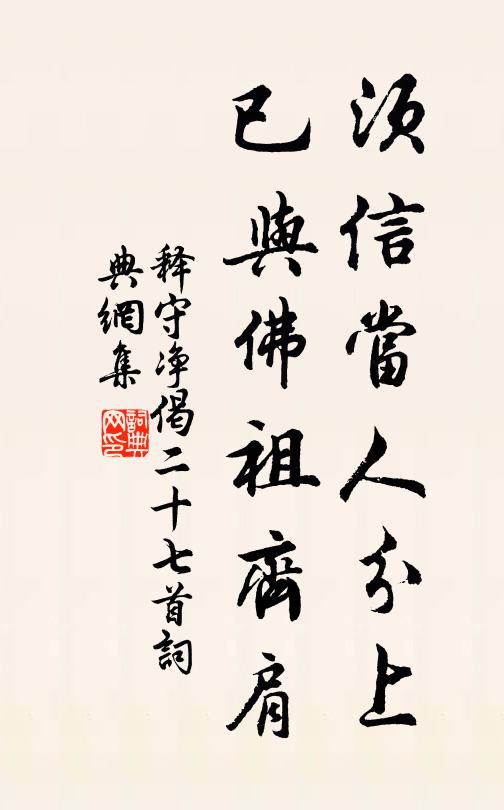 須信當人分上
已與佛祖齊肩
释守净偈二十七首詞
典網集
詞典网印